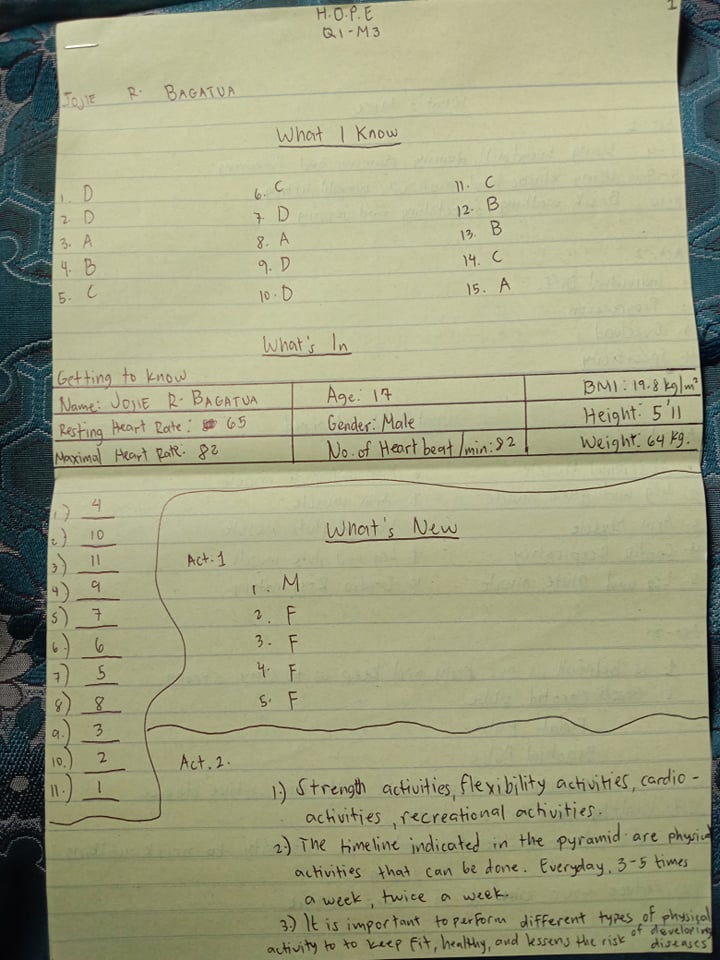 H.O.P.E
Q1-M3
1
JOJIE R. BAGATUA
What I Know
1. D
2. D
3. A
4. B
5. C
6. C
7. D
8. A
9. D
10. D
11. C
12. B
13. B
14. C
15. A
What's In
Getting to know
Name: JOJIE R. BAGATUA Age: 17 BMI: 19.8 kg/m²
Resting Heart Rate: 65 Gender: Male Height: 5'11
Maximal Heart Rate: 82 No. of Heart beat/min: 82 Weight: 64 kg.
1.) 4
2.) 10
3.) 11
4.) 9
5.) 7
6.) 6
7.) 5
8.) 8
9.) 3
10.) 2
11.) 1
What's New
Act. 1
1. M
2. F
3. F
4. F
5. F
Act. 2.
1.) Strength activities, flexibility activities, cardio -
activities, recreational activities.
2.) The timeline indicated in the pyramid are physical
activities that can be done. Everyday, 3-5 times
a week, twice a week.
3.) It is important to perform different types of physical
activity to to keep fit, healthy, and lessens the risk of developing
diseases